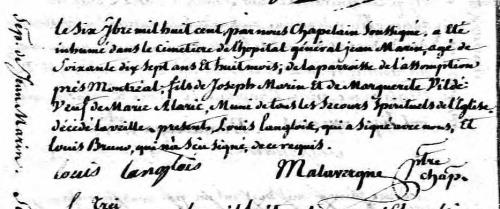 Sép. de Jean Marin.
le Six 7bre mil huit cent, par nous Chapelain Soussigné, a été
inhumé dans le cimetière de l'hopital général jean Marin, agé de
Soixante dix sept ans et huit mois, de la paroisse de l'assomption
près Montréal, fils de Joseph Marin et de Marguerite Vildé
Veuf de Marie Alarie, Muni de tous les Secours Spirituels de l'Eglise
décédé la veille. présents, Louis Langlois, qui a Signé avec nous, et
Louis Bruno, qui n'a Seu signé, de ce requis.
Louis Langlois Malavergne ptre
chap.